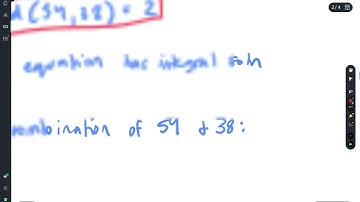 (54, 38) = 2
equation has integral soln
combination of 54 & 38:
2/4